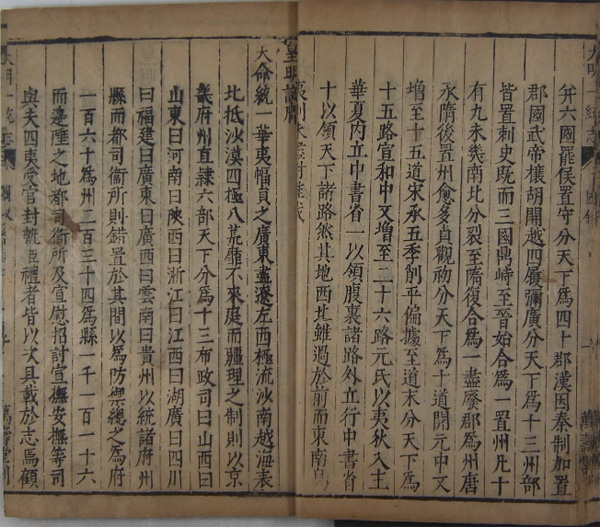 并六國罷侯置守分天下爲四十郡漢因秦制加置
郡國武帝攘胡開越四履彌廣分天下爲十三州部
皆置刺史既而三國鼎峙至晉始合爲一置州凡十
有九未幾南北分裂至隋復合爲一盡廢郡爲州唐
承隋後置州愈多貞觀初分天下爲十道開元中又
增至十五道宋承五季削平偏據至道末分天下爲
十五路宣和中又增至二十六路元氏以夷狄入主
華夏内立中書省一以領腹裏諸路外立行中書省
十以領天下諸路然其地西北雖過於前而東南島
天命統一華夷幅員之廣東盡遼左西極流沙南越海表
北抵沙漠四極八荒靡不來庭而疆理之制則以京
畿府州直隸六部天下分爲十三布政司曰山西曰
山東曰河南曰陝西曰浙江曰江西曰湖廣曰四川
曰福建曰廣東曰廣西曰雲南曰貴州以統諸府州
縣而都司衛所則錯置於其間以爲防禦總之爲府
一百六十爲州二百三十四爲縣一千一百一十六
而邊陲之地都司衛所及宣慰招討宣撫安撫等司
與夫四夷受官封執臣禮者皆以次具載於志焉顧